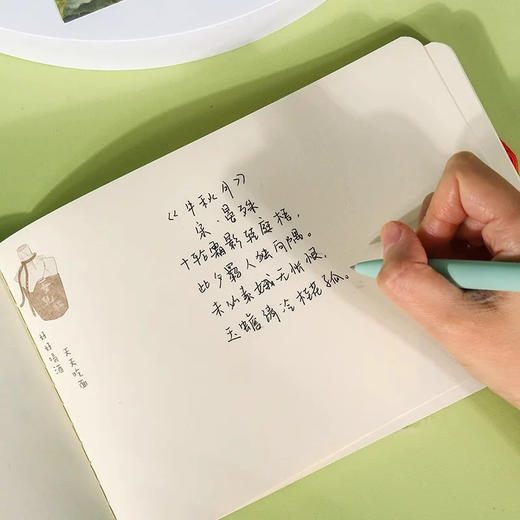 《中秋月》
宋·晏殊
十轮霜影转庭梧，
此夕羁人独向隅。
未必素娥无怅恨，
玉蟾清冷桂花孤。
好好喝酒
天天吃面